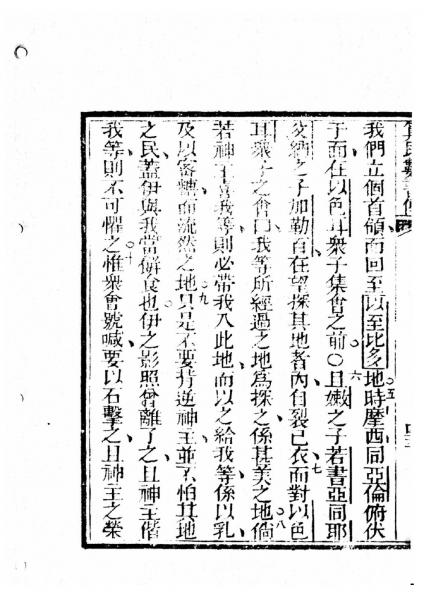 我們立個首領而回至以至比多地時○五摩西同亞倫俯伏
于面在以色耳衆子集會之前○六且嫩之子若書亞同耶
之子加勒百在望探其地者內自裂己衣○七而對以色
耳衆子之會曰我等所經過之地為探之係甚美之地○八倘
若神主喜我等則必帶我入此地而以之給我等係以乳
及以蜜糖而流然之地○九只是不要背逆神主並不怕其地
之民蓋伊與我當餅食也伊之影照曾離了之且神主偕
我等則不可懼之○十惟衆會號喊要以石擊之且神主之榮